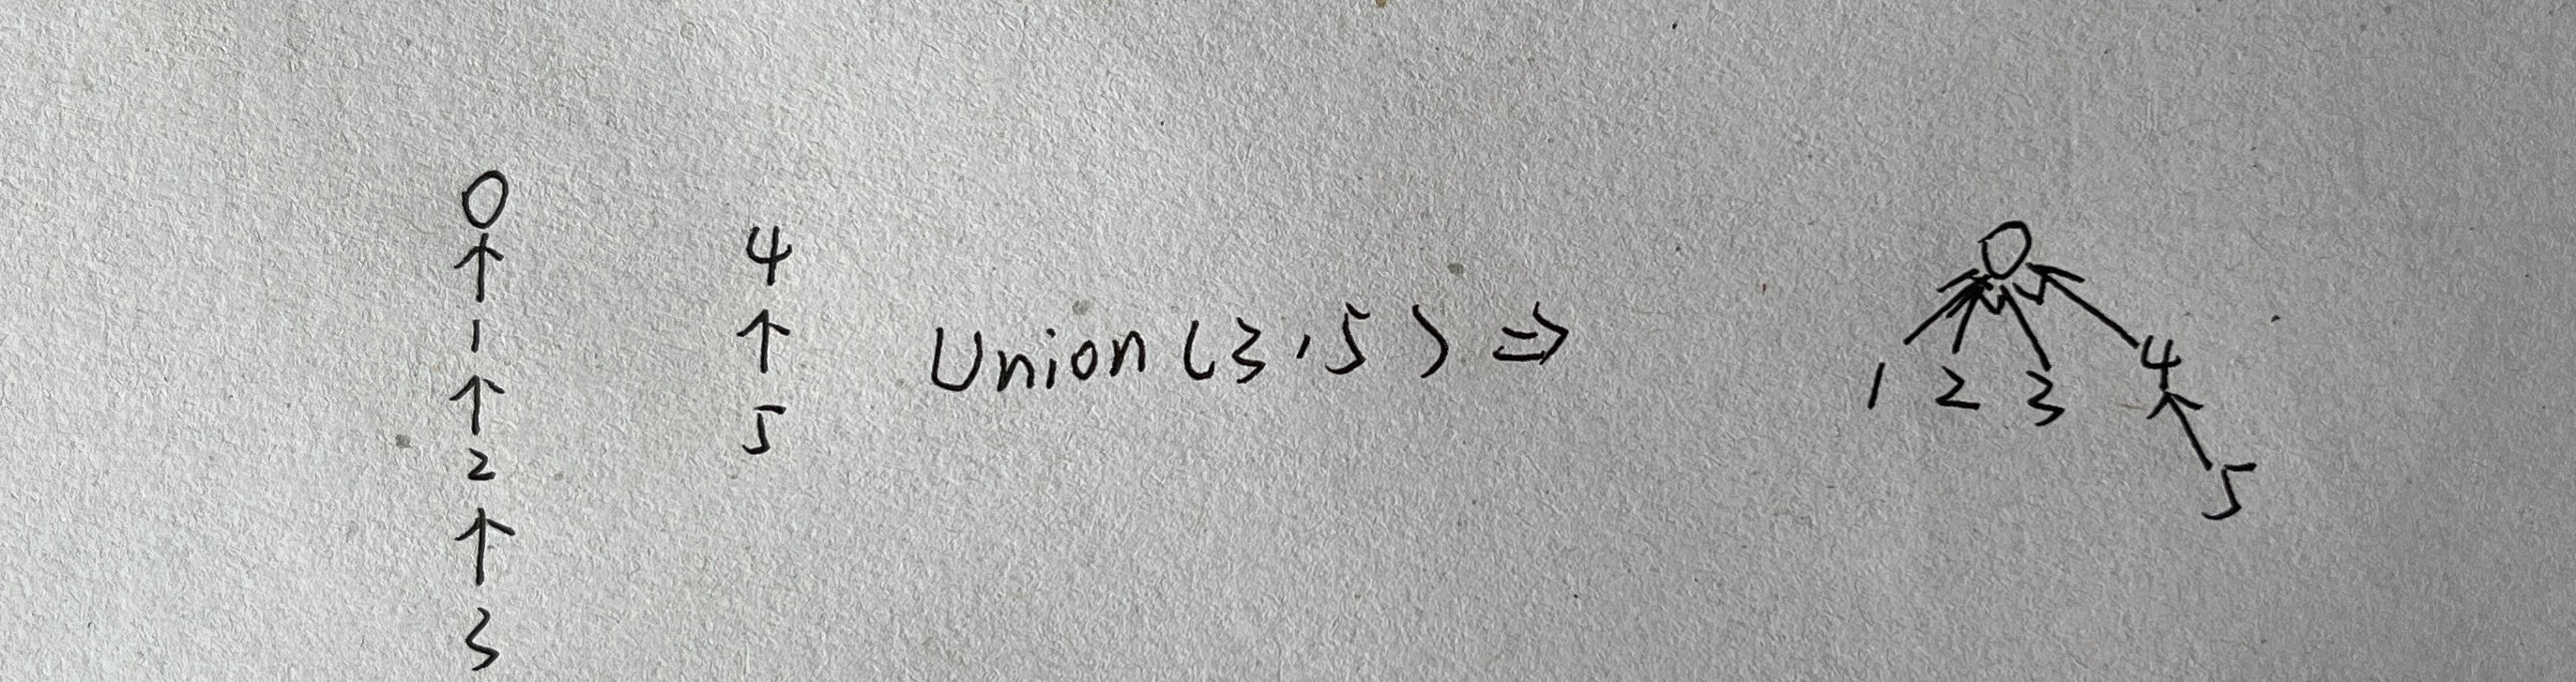 0
↑
1
↑
2
↑
3
4
↑
5
Union(3,5) ⇒
0
1 2 3 4
5